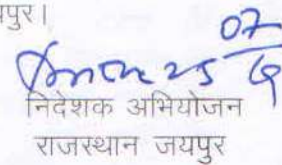 यपुर।
07
निदेशक अभियोजन
राजस्थान जयपुर